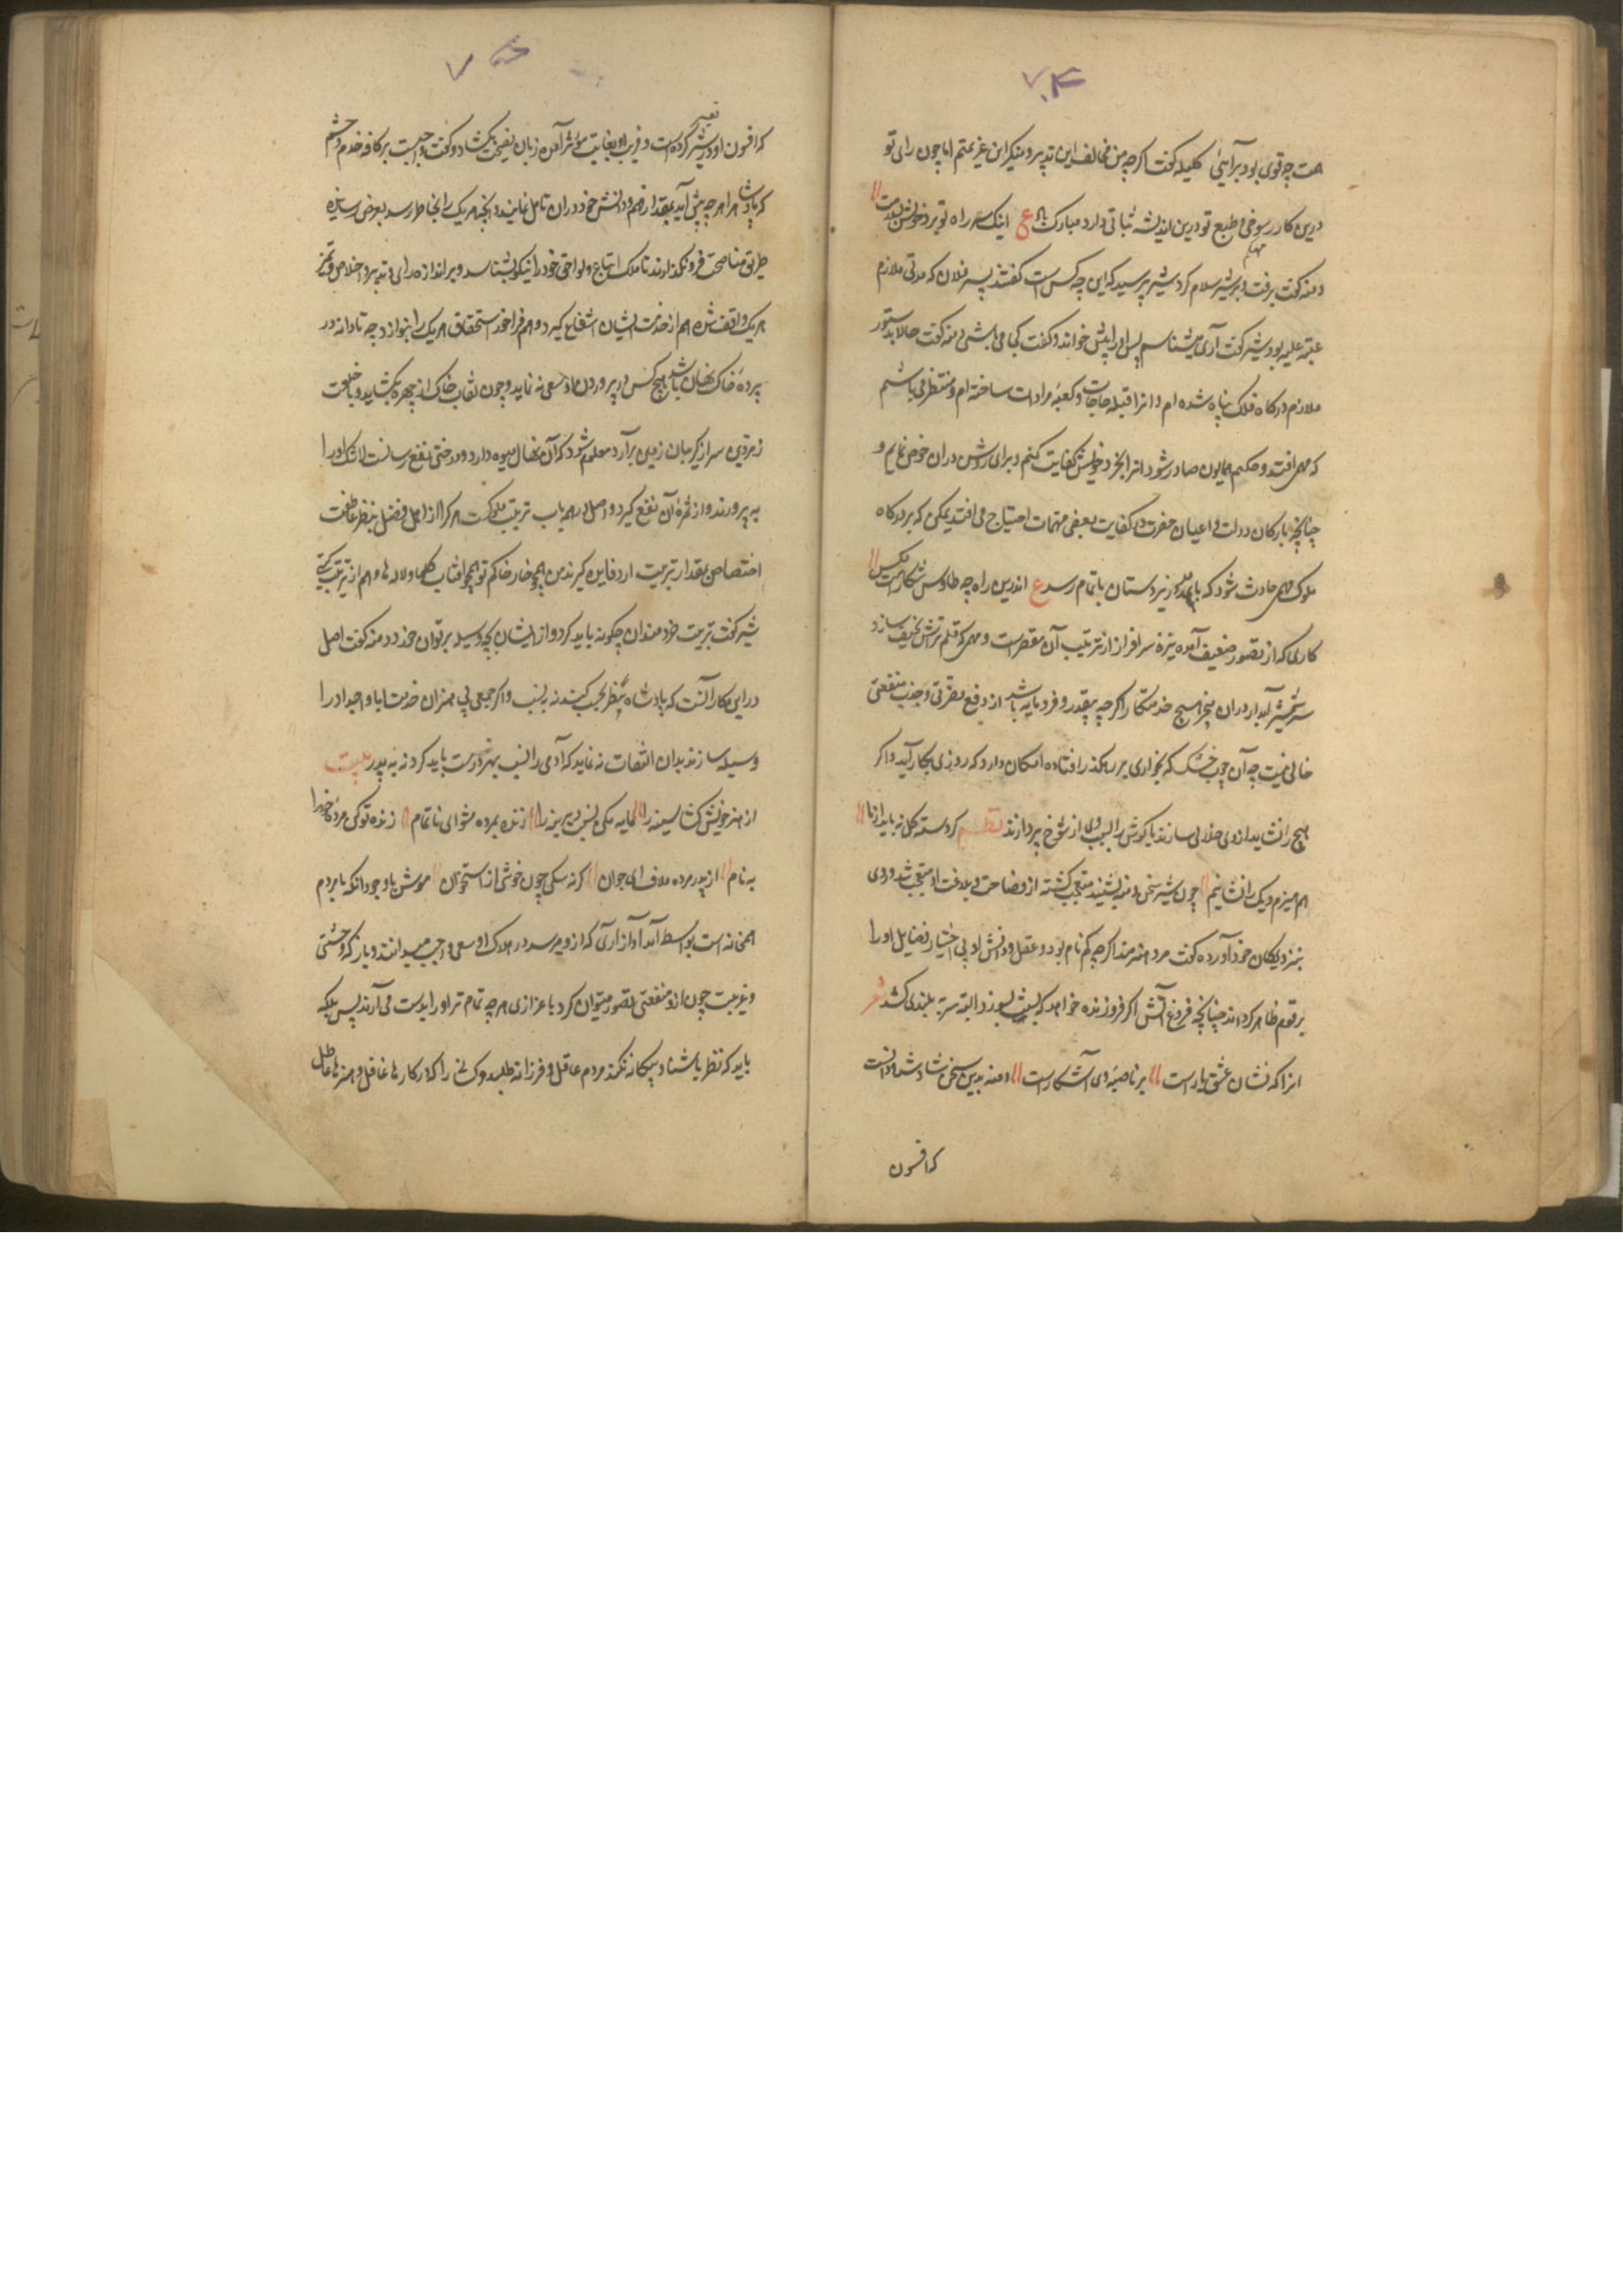 ۷۴
همت چه قوی بود برآیینی کلیله گفت اگرچه من مخالف این تدبیر و منکر این عزیمتم اما چون رای تو
درین کار رسوخی و طبع تو درین اندیشه ثباتی دارد مبارک باد ع اینک سر راه تو برو خوش بسلامت
دمنه گفت برفت و بر شیر سلام کرد شیر پرسید که این چه کس است گفتند پسر فلان که مدتی ملازم
عتبه علیه بود شیر گفت آری میشناسم پس او را پیش خواند و گفت کجا می باشی دمنه گفت حالا بدستور
ملازم درگاه فلک پناه شده ام و انرا قبله حاجات و کعبه مرادات ساخته ام و منتظر می باشم
که مهمی افتد و حکم همایون صادر شود انرا بخرد خویش کفایت کنم و برای روشن دران خوض نمایم و
چنانچه بارکان دولت و اعیان حضرت در کفایت بعضی مهمات احتیاج می افتد یمکن که بر درگاه
ملوک مهمی حادث شود که بمدد زیردستان باتمام رسد ع اندرین راه چه طاوس بکارست مکس
کاری که از تصور ضعیف آمده نیزه سرافراز از ترتیب آن مقصر است و مهمی که قلم تراش نحیف سازد
شمشیر آبدار دران هیچ خدمتکار اگرچه بیقدر و فرومایه باشد از دفع مضرتی و جذب منفعتی
خالی نیست چه آن چوب خشک که بخواری بر رهگذر افتاده امکان دارد که روزی بکار آید و اگر
هیچ را نشاید ازوی خلالی سازند یا گوش را بسبب وی از شوخ پردازند نظم گر دسته گل نیاید از ما
هم هیزم دیک را نشانیم چون شیر سخن دمنه بشنید متعجب گشته از فصاحت و بلاغت او متعجب شد و روی
بنزدیکان خود آورده گفت مرد هنرمند اگرچه گم نام بود و عقل و دانش او بی اختیار فضایل او را
بر قوم ظاهر گرداند چنانچه فروغ آتش اگر فروزنده خواهد که پست بسوزد البته سر به بلندی کشد شعر
انرا که نشان عشق یارست بر ناصیه وی آشکارست دمنه بدین سخن شاد شد و دانست
که افسون
۷
که افسون او در شیر کرده است و فریب او بغایت مؤثر آمده زبان نصیحت بکشاد و گفت واجبست بر کافه خدم و حشم
که پادشاه را هرچه پیش آید بمقدار فهم و دانش خود دران تامل نمایند و انچه هر یک را بخاطر رسد بعرض رسانیده
طریق مناصحت فرو نگذارند تا ملک اتباع و لواحق خود را نیکو بشناسد و بر اندازه رای و تدبیر و اخلاص و تمیز
هر یک واقف شده هم از خدمت ایشان انتفاع گیرد و هم فراخور استحقاق هر یک را بنوازد چه تا دانه در
پرده خاک نهان باشد هیچ کس در پروردن او سعی نه نماید و چون نقاب خاک از چهره بکشاید و با خلعت
زمردین سر از گریبان زمین برآرد معلوم شود که آن نهال میوه دارد و درختی نفع رسانست لاشک او را
به پرورند و از ثمره آن نفع گیرد و اصل در همه باب تربیت ملوکست هر کرا از اهل فضل بنظر عاطفت
اختصاص بمقدار تربیت ازو فایده گیرند من همچو خار خاکم تو همچو افتاب گلها و لاله ها دهم از تربیت کنی
شیر گفت تربیت خردمندان چگونه باید کرد و از ایشان بچه وسیله بر توان خورد دمنه گفت اصل
در این کار آنست که پادشاه نظر بحسب کند نه بنسب و اگر جمعی بی هنران خدمت ابا و اجداد را
وسیله سازند بدان التفات نه نماید که آدمی را نسب بهنر درست باید کرد نه به پدر بیت
از هنر خویش کشا سینه را مایه مکن نسبت دیرینه را زنده بمرده مشو ای ناتمام زنده تو کن مرده خود را
به نام از پدر مرده ملاف ای جوان گر نه سگی چون خوشی از استخوان موش با وجود آنکه با مردم
همخانه است بواسطه آزاری که از و میرسد در هلاک او سعی واجب میدانند و باز که وحشی
و غریبست چون ازو منفعتی تصور میتوان کرد باعزازی هرچه تمامتر او را بدست می آرند پس ملکه
باید که نظر باشنا و بیگانه نکند مردم عاقل و فرزانه طلبد و کسانی را که در کارها غافل و از هنرها عاطل